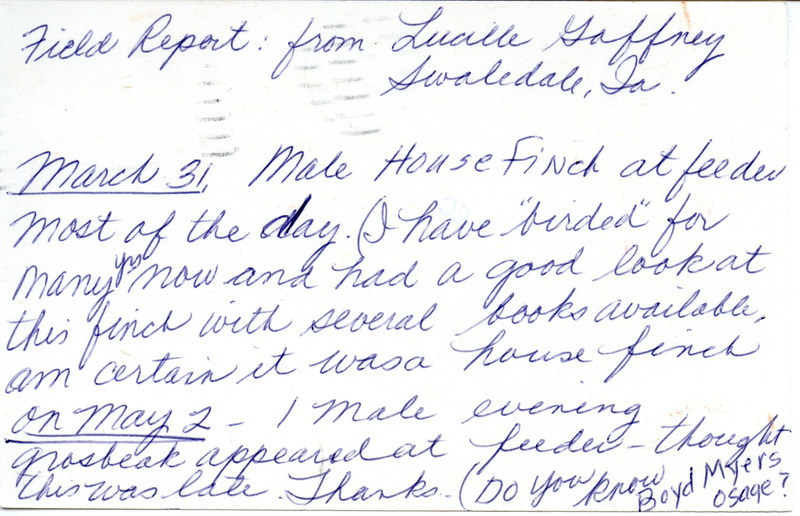 Field Report: from Lucille Gaffney
Swaledale, Ia.
March 31, Male House Finch at feeder
most of the day. (I have "birded" for
many yrs now and had a good look at
this finch with several books available,
am certain it was a house finch
on May 2 - 1 Male evening
grosbeak appeared at feeder - thought
this was late. Thanks. (Do you know
Boyd Myers
Osage?